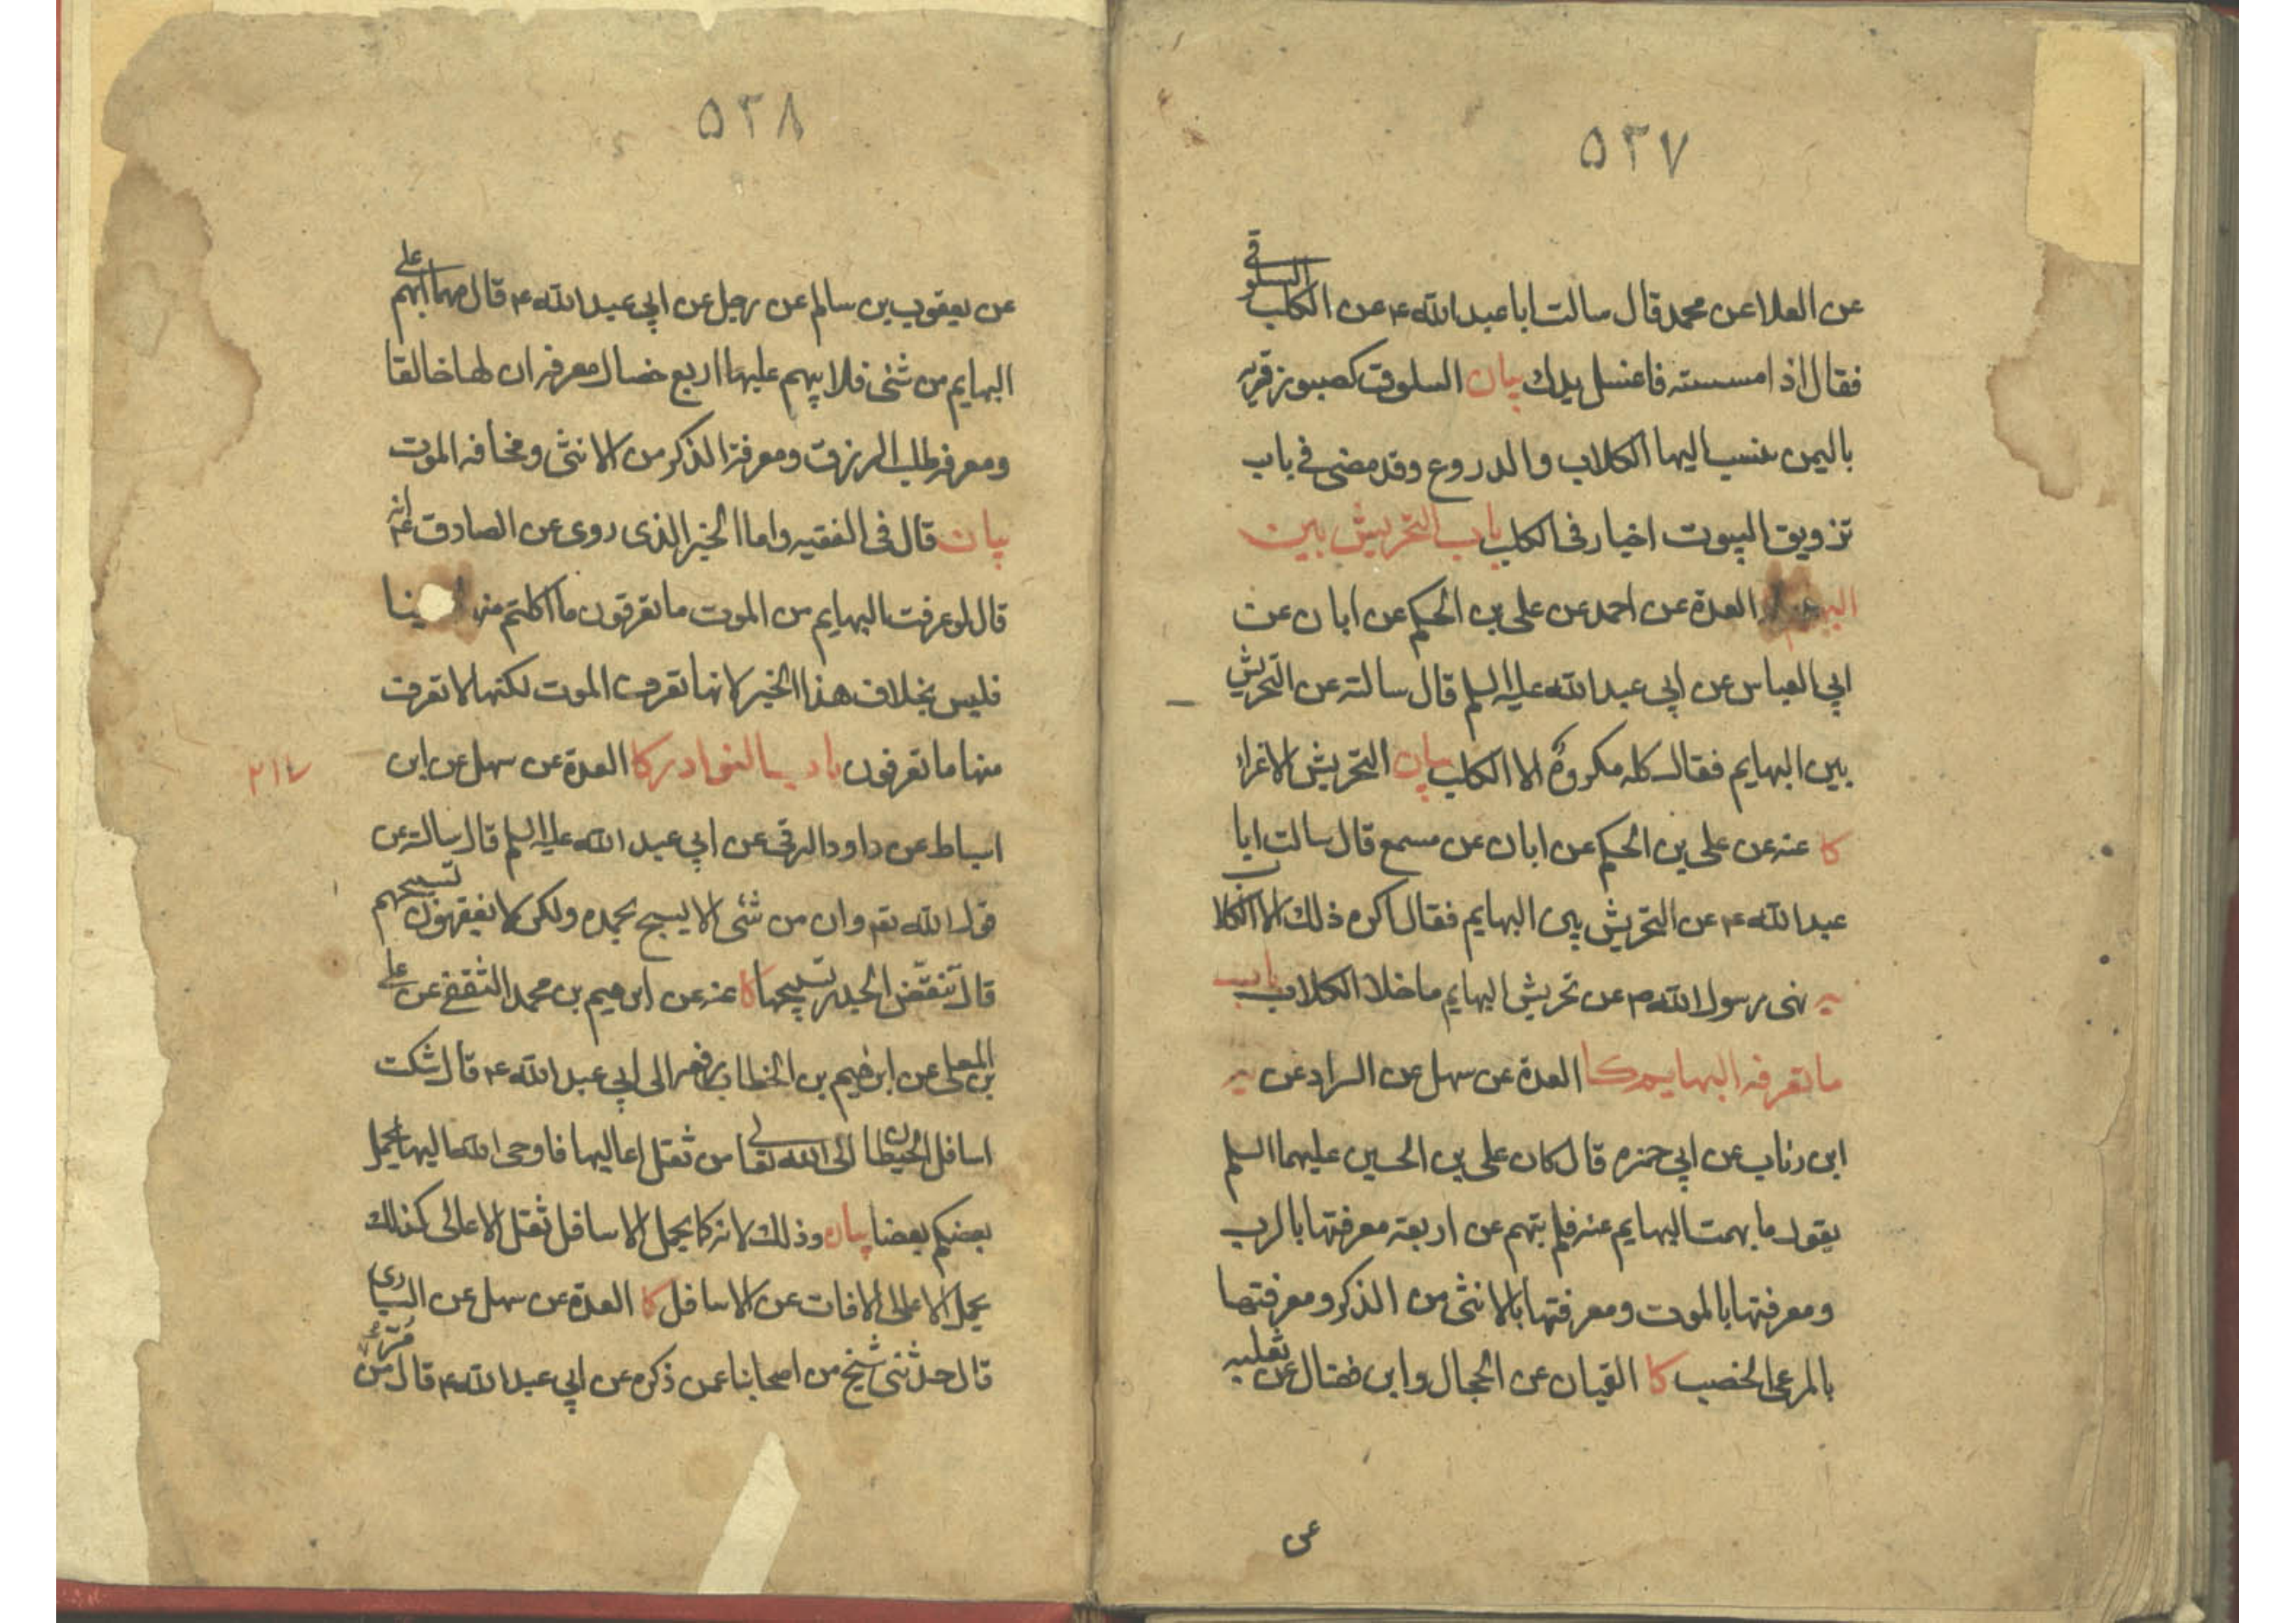 ٥٣٧
عن العلا عن محمد قال سالت ابا عبد الله ع عن الكلب السلوقي
فقال اذا مسسته فاغسل يدك بيان السلوق كصبور قرية
باليمن ينسب اليها الكلاب والدروع وقد مضى في باب
تزويق البيوت اخبار في الكلب باب التحريش بين
العدة عن احمد عن علي بن الحكم عن ابان عن
ابي العباس عن ابي عبد الله عليه السلم قال سالته عن التحريش
بين البهايم فقال كله مكروه الا الكلب بيان التحريش الاغراء
كا عنه عن علي بن الحكم عن ابان عن مسمع قال سالت ابا
عبد الله ع عن التحريش بين البهايم فقال اكره ذلك الا الكلاب
يه نهى رسول الله ص عن تحريش البهايم ما خلا الكلاب باب
ما تعرفه البهايم كا العدة عن سهل عن السراد عن يه
ابن رئاب عن ابي حمزه قال كان علي بن الحسين عليهما السلم
يقول ما بهمت البهايم عنه فلم تبهم عن اربعة معرفتها بالرب
ومعرفتها بالموت ومعرفتها بالانثى من الذكر ومعرفتها
بالمرعى الخصب كا القميان عن الحجال وابن فضال عن ثعلبه
عن
٥٣٨
عن يعقوب بن سالم عن رجل عن ابي عبد الله ع قال مهما ابهم على
البهايم من شئ فلا يبهم عليها اربع خصال معرفه ان لها خالقا
ومعرفه طلب الرزق ومعرفة الذكر من الانثى ومخافه الموت
بيان قال في الفقيه واما الخبر الذى روى عن الصادق ع انه
قال لو عرفت البهايم من الموت ما تعرفون ما اكلتم منها
فليس بخلاف هذا الخبر لانها تعرف الموت لكنها لا تعرف
منها ما تعرفون باب النوادر كا العدة عن سهل عن ابن
اسباط عن داود الرقي عن ابي عبد الله عليه السلم قال سالته عن
قول الله تع وان من شئ الا يسبح بحمده ولكن لا تفقهون تسبيحهم
قال تنقض الجدر تسبيحها كا عنه عن ابرهيم بن محمد الثقفي عن علي
بن المعلى عن ابرهيم بن الخطاب رفعه الى ابي عبد الله ع قال شكت
اسافل الحيطان الى الله تعالى من ثقل اعاليها فاوحى الله اليها يحمل
بعضكم بعضا بيان وذلك لانه كما يحمل الاسافل ثقل الاعالى كذلك
يحمل الاعالى الافات عن الاسافل كا العدة عن سهل عن السيارى
قال حدثنى شيخ من اصحابنا عمن ذكره عن ابي عبد الله ع قال من